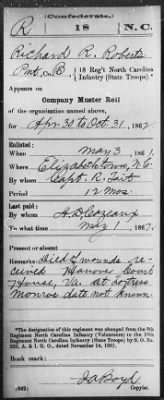 (Confederate.)
R 18 N.C.
Richard R. Roberts
Pvt, Co. B, 18 Reg't North Carolina
Infantry (State Troops).*
Appears on
Company Muster Roll
of the organization named above,
for Apr 30 to Oct. 31, 1862.
Enlisted:
When May 3, 1861.
Where Elizabethtown, N.C.
By whom Capt. R. Tait
Period 12 Mos.
Last paid:
By whom
To what time May 1, 1862.
Present or absent
Remarks: Died of wounds re-
ceived Hanover Court
House, Va. at Fortress
Monroe date not known.
*The designation of this regiment was changed from the 8th
Regiment North Carolina Infantry (Volunteers) to the 18th
Regiment North Carolina Infantry (State Troops) by S. O. No.
222, A. & I. G. O., dated November 14, 1861.
Book mark:
(642) Copyist.